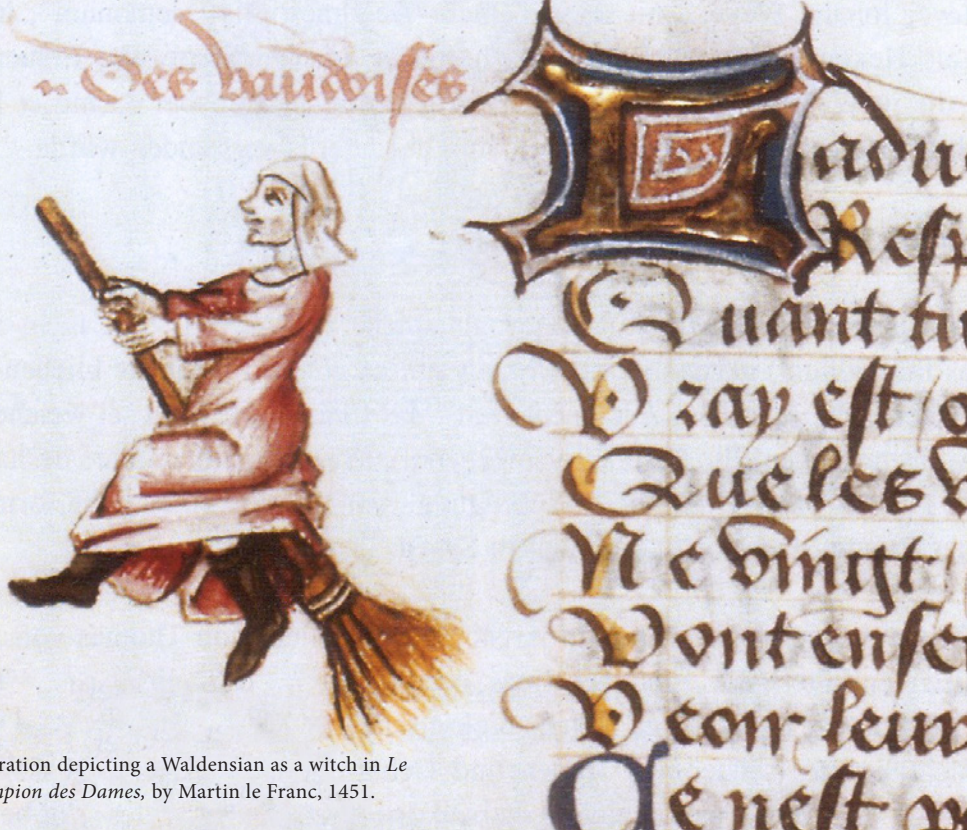 Des vaudoises
L adu
Resp
Quant tu
Vray est
Que les v
Ne vingt
Vont ense
Veoir leur
Ce nest p
ration depicting a Waldensian as a witch in Le
pion des Dames, by Martin le Franc, 1451.